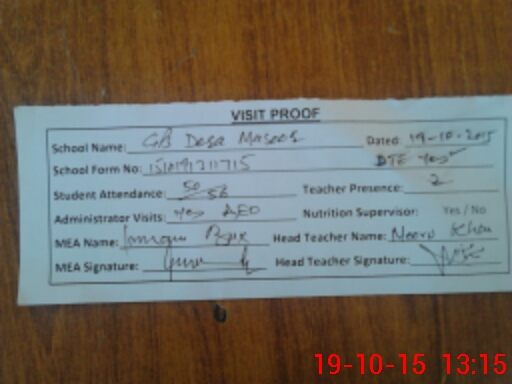 VISIT PROOF
School Name: GB Dera Dated: 19-10-2015
School Form No: DTE Yes
Student Attendance: 50/56 Teacher Presence: 2
Administrator Visits: Yes AEO Nutrition Supervisor: Yes / No
MEA Name: Head Teacher Name: Khan
MEA Signature: Head Teacher Signature:
19-10-15 13:15